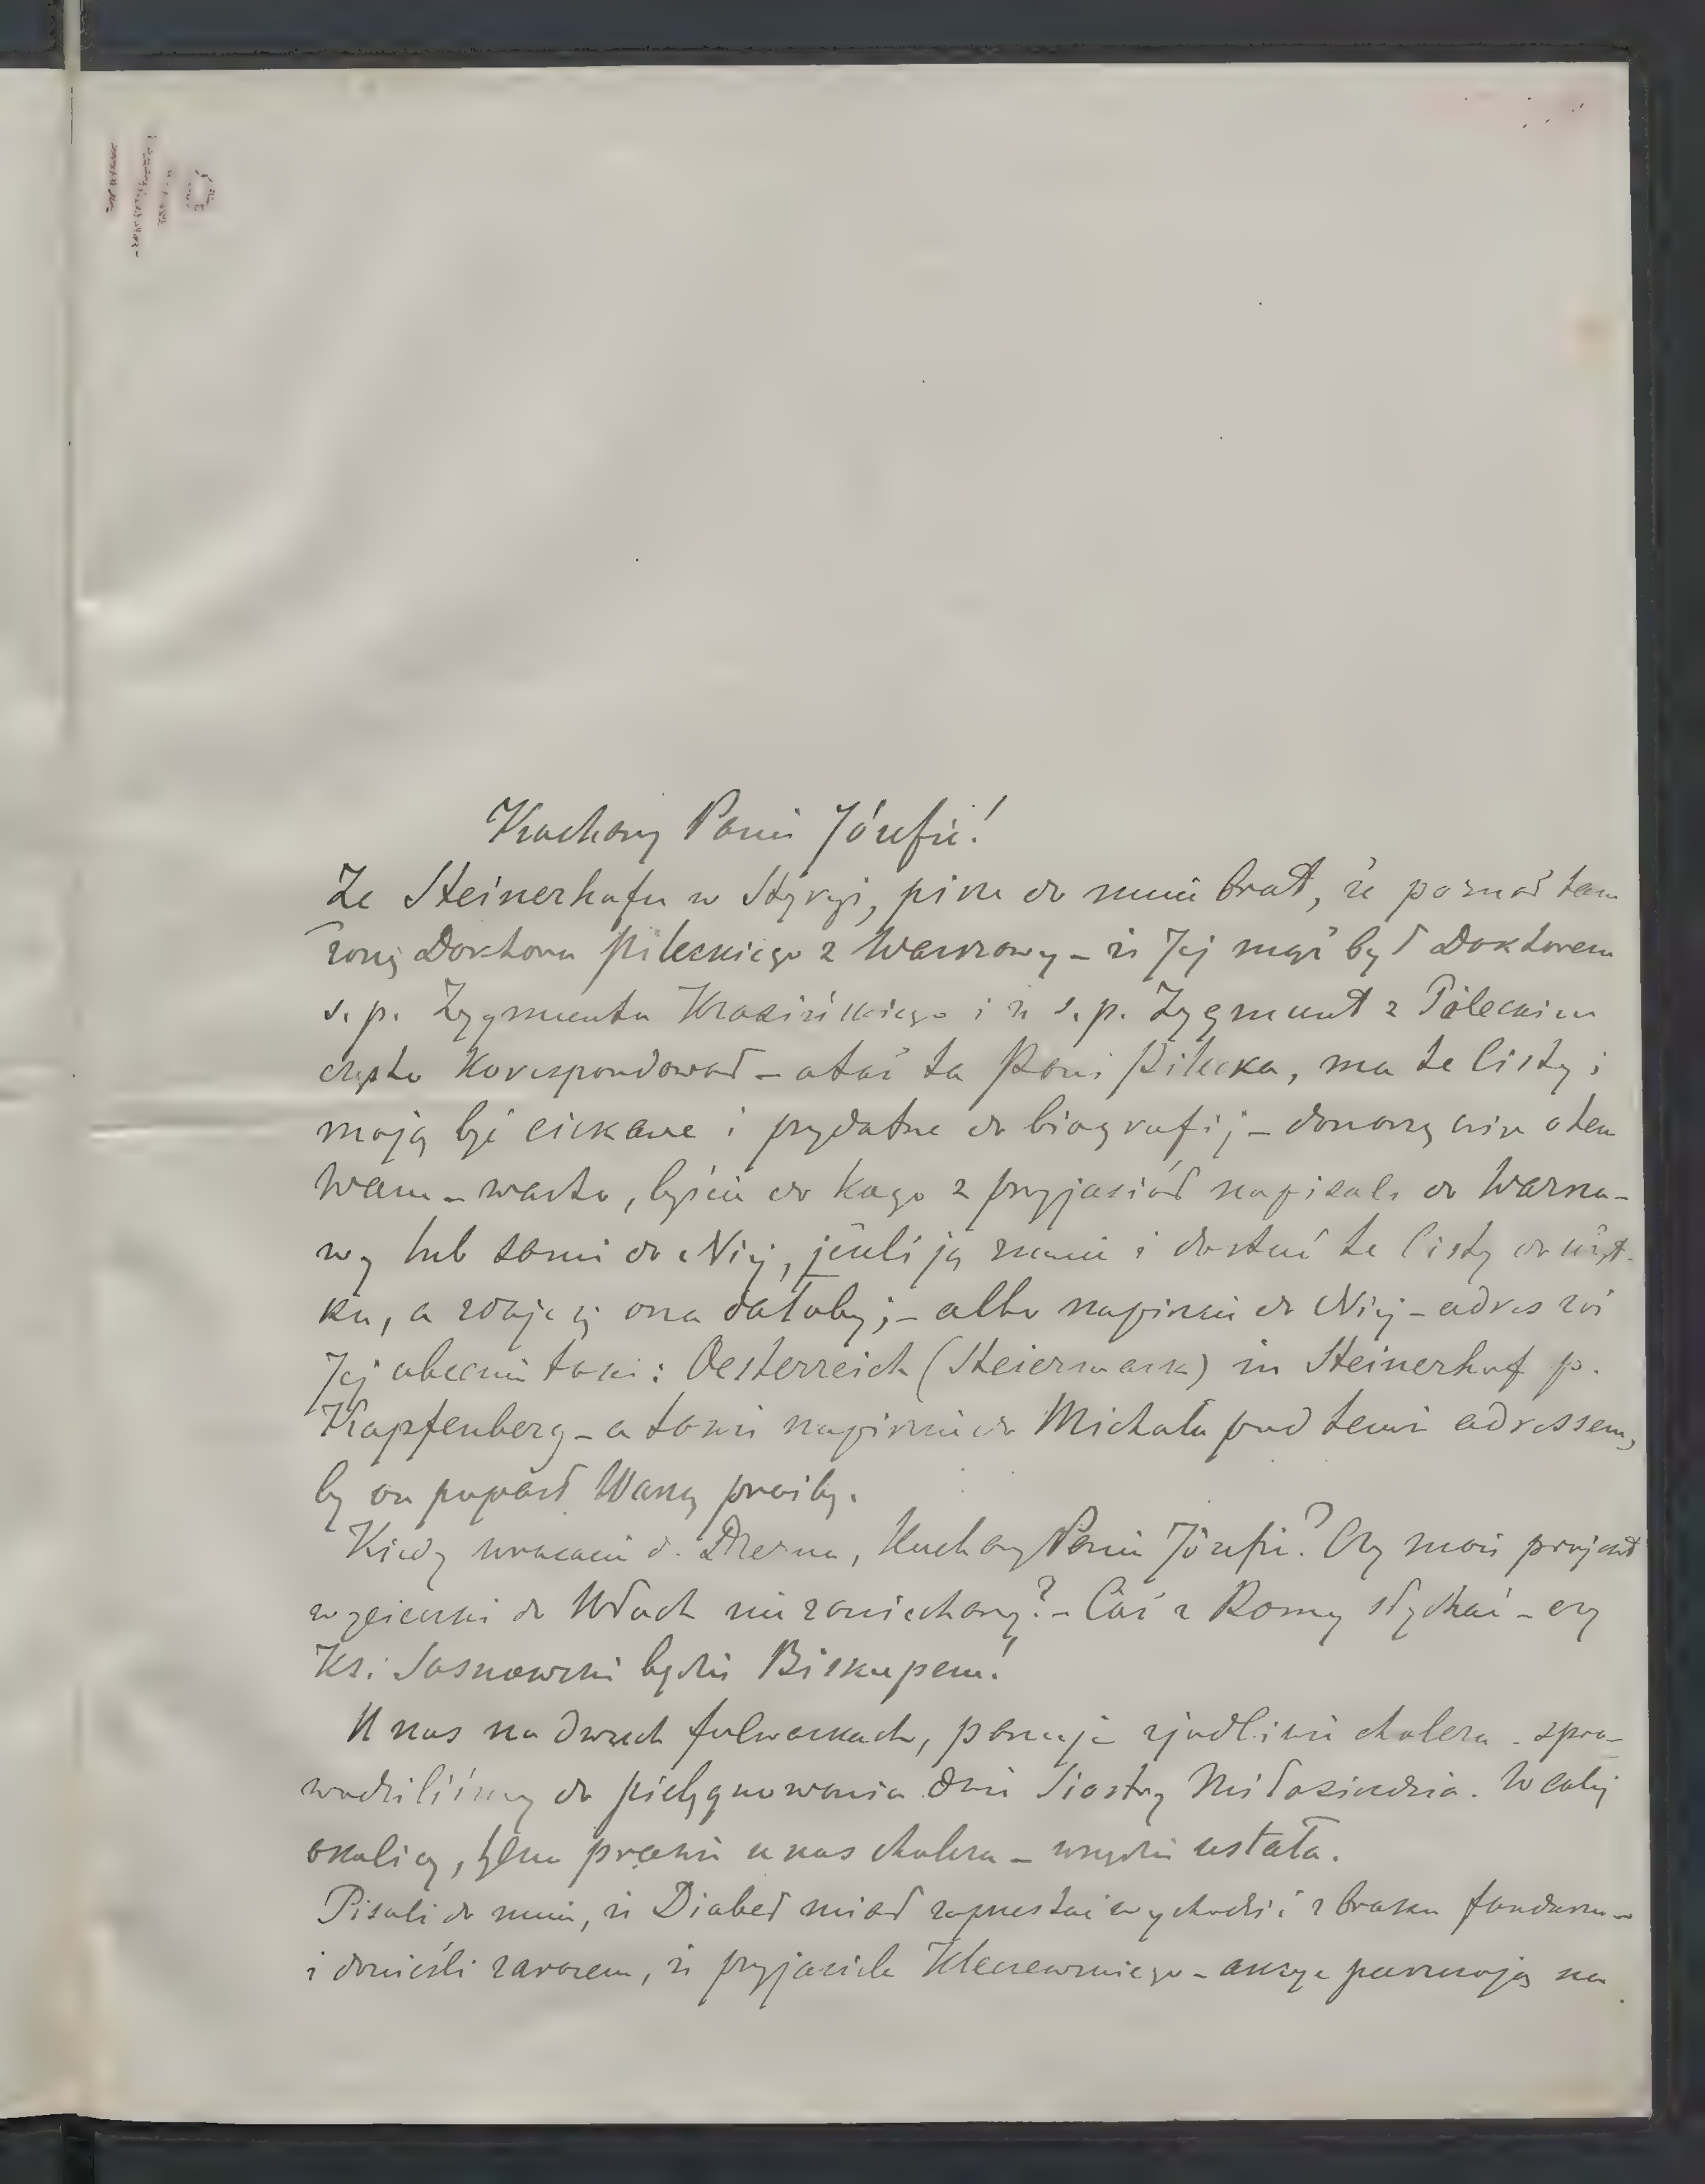 Kochany Panie Józefie!
Ze Steinerhofu w Styryi, pisze do mnie brat, że poznał tam
żonę Doktora Pileckiego z Warszawy – że Jej mąż był Doktorem
s. p. Zygmunta Krasińskiego i że s. p. Zygmunt z Pileckim
często korespondował – otóż ta Pani Pilecka, ma te listy i
mają być ciekawe i przydatne do biografij – donoszę więc o tem
Wam – warto, byście do kogo z przyjaciół napisali do Warsza-
wy lub sami do Niej, jeżeli ją znacie i dostać te listy do użyt-
ku, a zdaje się ona dałaby; – albo napiszcie do Niej – adres zaś
Jej obecnie taki: Oesterreich (Steiermark) in Steinerhof p.
Kapfenberg – a także napiszcie do Michała pod temże adressem,
by on poparł Waszą prośbę.
Kiedy wracacie d. Drezna, Kochany Panie Józefie? Czy macie projekt
wycieczki do Włoch nie zaniechany? – Coś z Romy słychać – czy
Ks. Sosnowski będzie Biskupem?
U nas na dwuch folwarkach, panuje zjadliwie cholera – spro-
wadziliśmy do pielęgnowania dwie Siostry Miłosierdzia. W całej
okolicy, tylko prawie u nas cholera – wszędzie ustała.
Pisali do mnie, że Djabeł miał zaprzestać wychodzić z braku funduszu –
i donieśli zarazem, że przyjaciele – akcye na